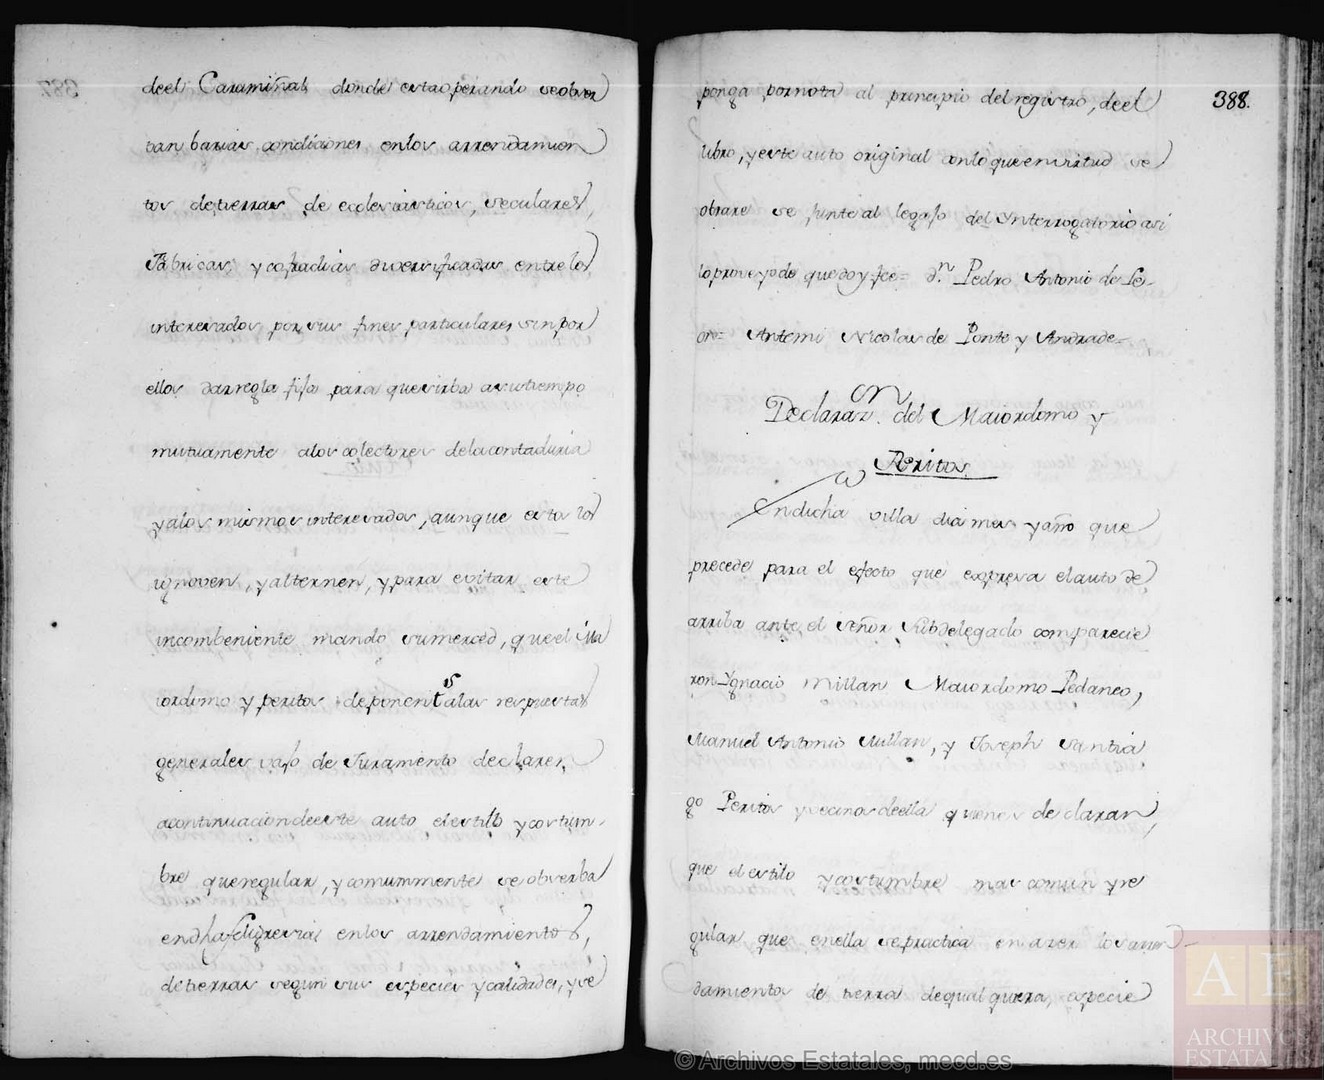 deel Caramiñal, donde estaoperando seobser
van barias condiciones enlos arrendamien
tos detierras de eclesiasticos, seculares,
Fabricas, y cofradias diversificadas entre los
interesados por sus fines particulares sin por
ellos dar regla fija para quesirba asutiempo
mutuamente alos colectores dela contaduria
yalos mismos interesados, aunque estos lo
ignoren, yalternen, ypara evitar este
incombeniente mando sumerced, queel Ma
iordomo y peritos deponentˢ alas respuestas
generales vajo de Juramento declaren,
acontinuacion deeste auto elestilo ycostum-
bre queregular, ycomunmente se obserba
endha feligresia, enlos arrendamientos,
detierras segun sus especies ycalidades, yse
387
388.
ponga pornota al principio del registro, deel
libro, yeste auto original conlo queensirtud se
obrare se junte al legajo del Ynterrogatorio asi
lo proveyo de quedoy fee= dⁿ. Pedro Antonio de Le-
on= Antemi Nicolas de Ponte y Andrade=
Declarazⁿ. del Maiordomo y
Peritos
Endicha villa dia mes yaño que
precede para el efecto que expresa elauto de
arriba ante, el señor Subdelegado comparecie
ron Ygnacio Millan Maiordomo Pedaneo,
Manuel Antonio Millan, y Joseph Santia
go Peritos yvecinos deella quienes declaran,
que el estilo ycostumbre mas comun yre
gular que enella sepractica enazer los arren-
damientos de tierra dequalquiera, especie
AE
ARCHIVOS
ESTATALES
© Archivos Estatales, mecd.es